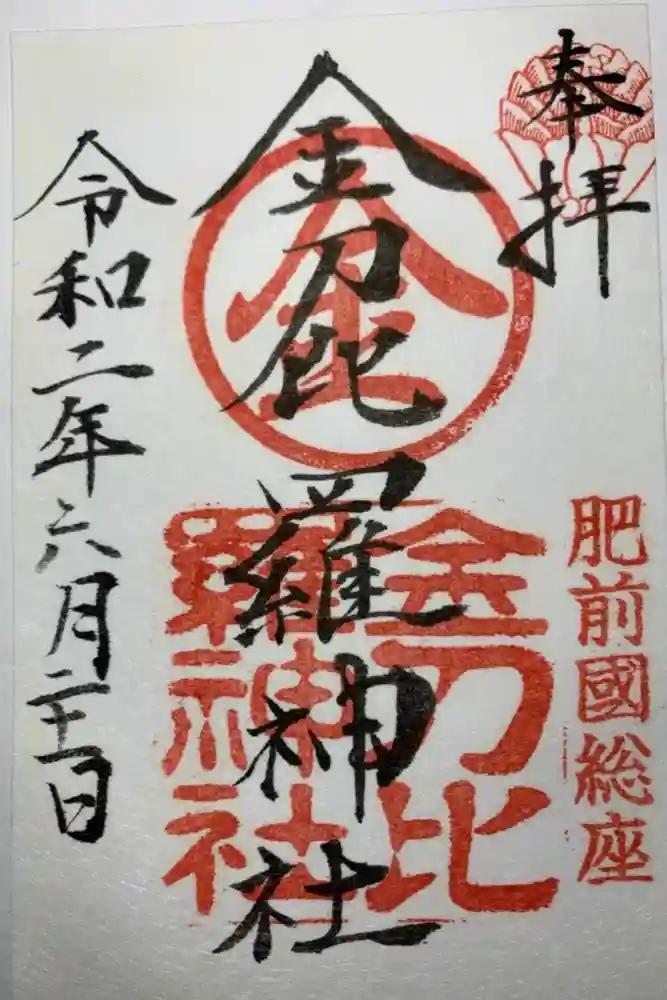 奉拝
肥前國総座
金刀比羅神社
金
金刀比
羅神社
令和二年六月二十一日